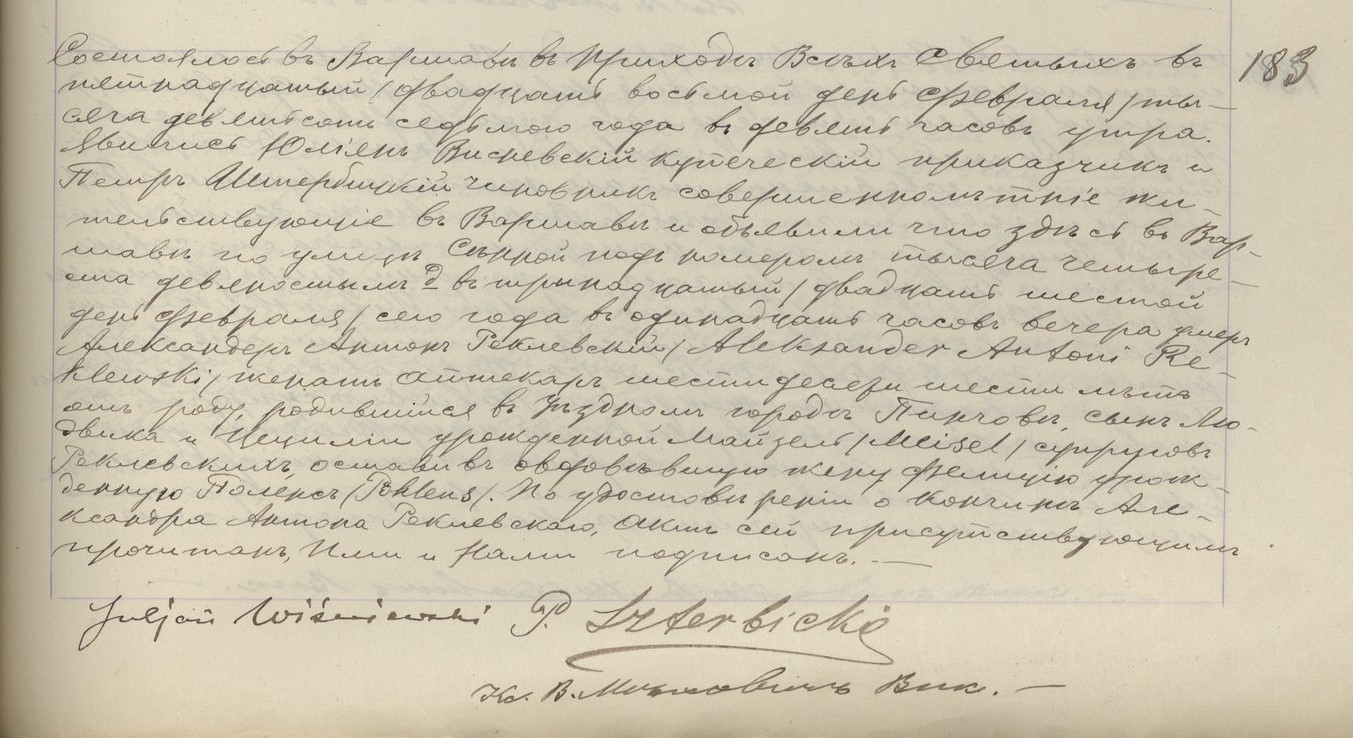 183
Состоялось въ Варшавѣ въ приходѣ Всѣхъ Святыхъ въ
пятнадцатый / двадцать восьмой день Февраля / ты-
сяча девятьсотъ седьмого года въ девять часовъ утра.
Явились Юліенъ Висневскій купеческій приказчикъ и
Петръ Штербицкій чиновникъ совершеннолѣтніе жи-
тельствующіе въ Варшавѣ и объявили что здѣсь въ Вар-
шавѣ по улицѣ Сѣнной подъ номеромъ тысяча четыре-
ста девяностымъ въ тринадцатый / двадцать шестой
день Февраля / сего года въ одинадцать часовъ вечера умеръ
Александеръ Антонъ Реклевскій / Aleksander Antoni Re-
klewski / женатъ аптекарь шестидесяти шести лѣтъ
отъ роду, родившійся въ уѣздномъ городѣ Пинчовѣ, сынъ Лю-
двика и Цециліи урожденной Майзель / Meisel / супруговъ
Реклевскихъ оставивъ овдовѣвшую жену Фелицію урож-
денную Поленсъ / Pohlens /. По удостовѣреніи о кончинѣ Але-
ксандра Антона Реклевскаго, Актъ сей присутствующимъ
прочитанъ, Ими и Нами подписанъ. —
Juljan Wiśniewski P. Szterbicki
Кс. В. Вик. —